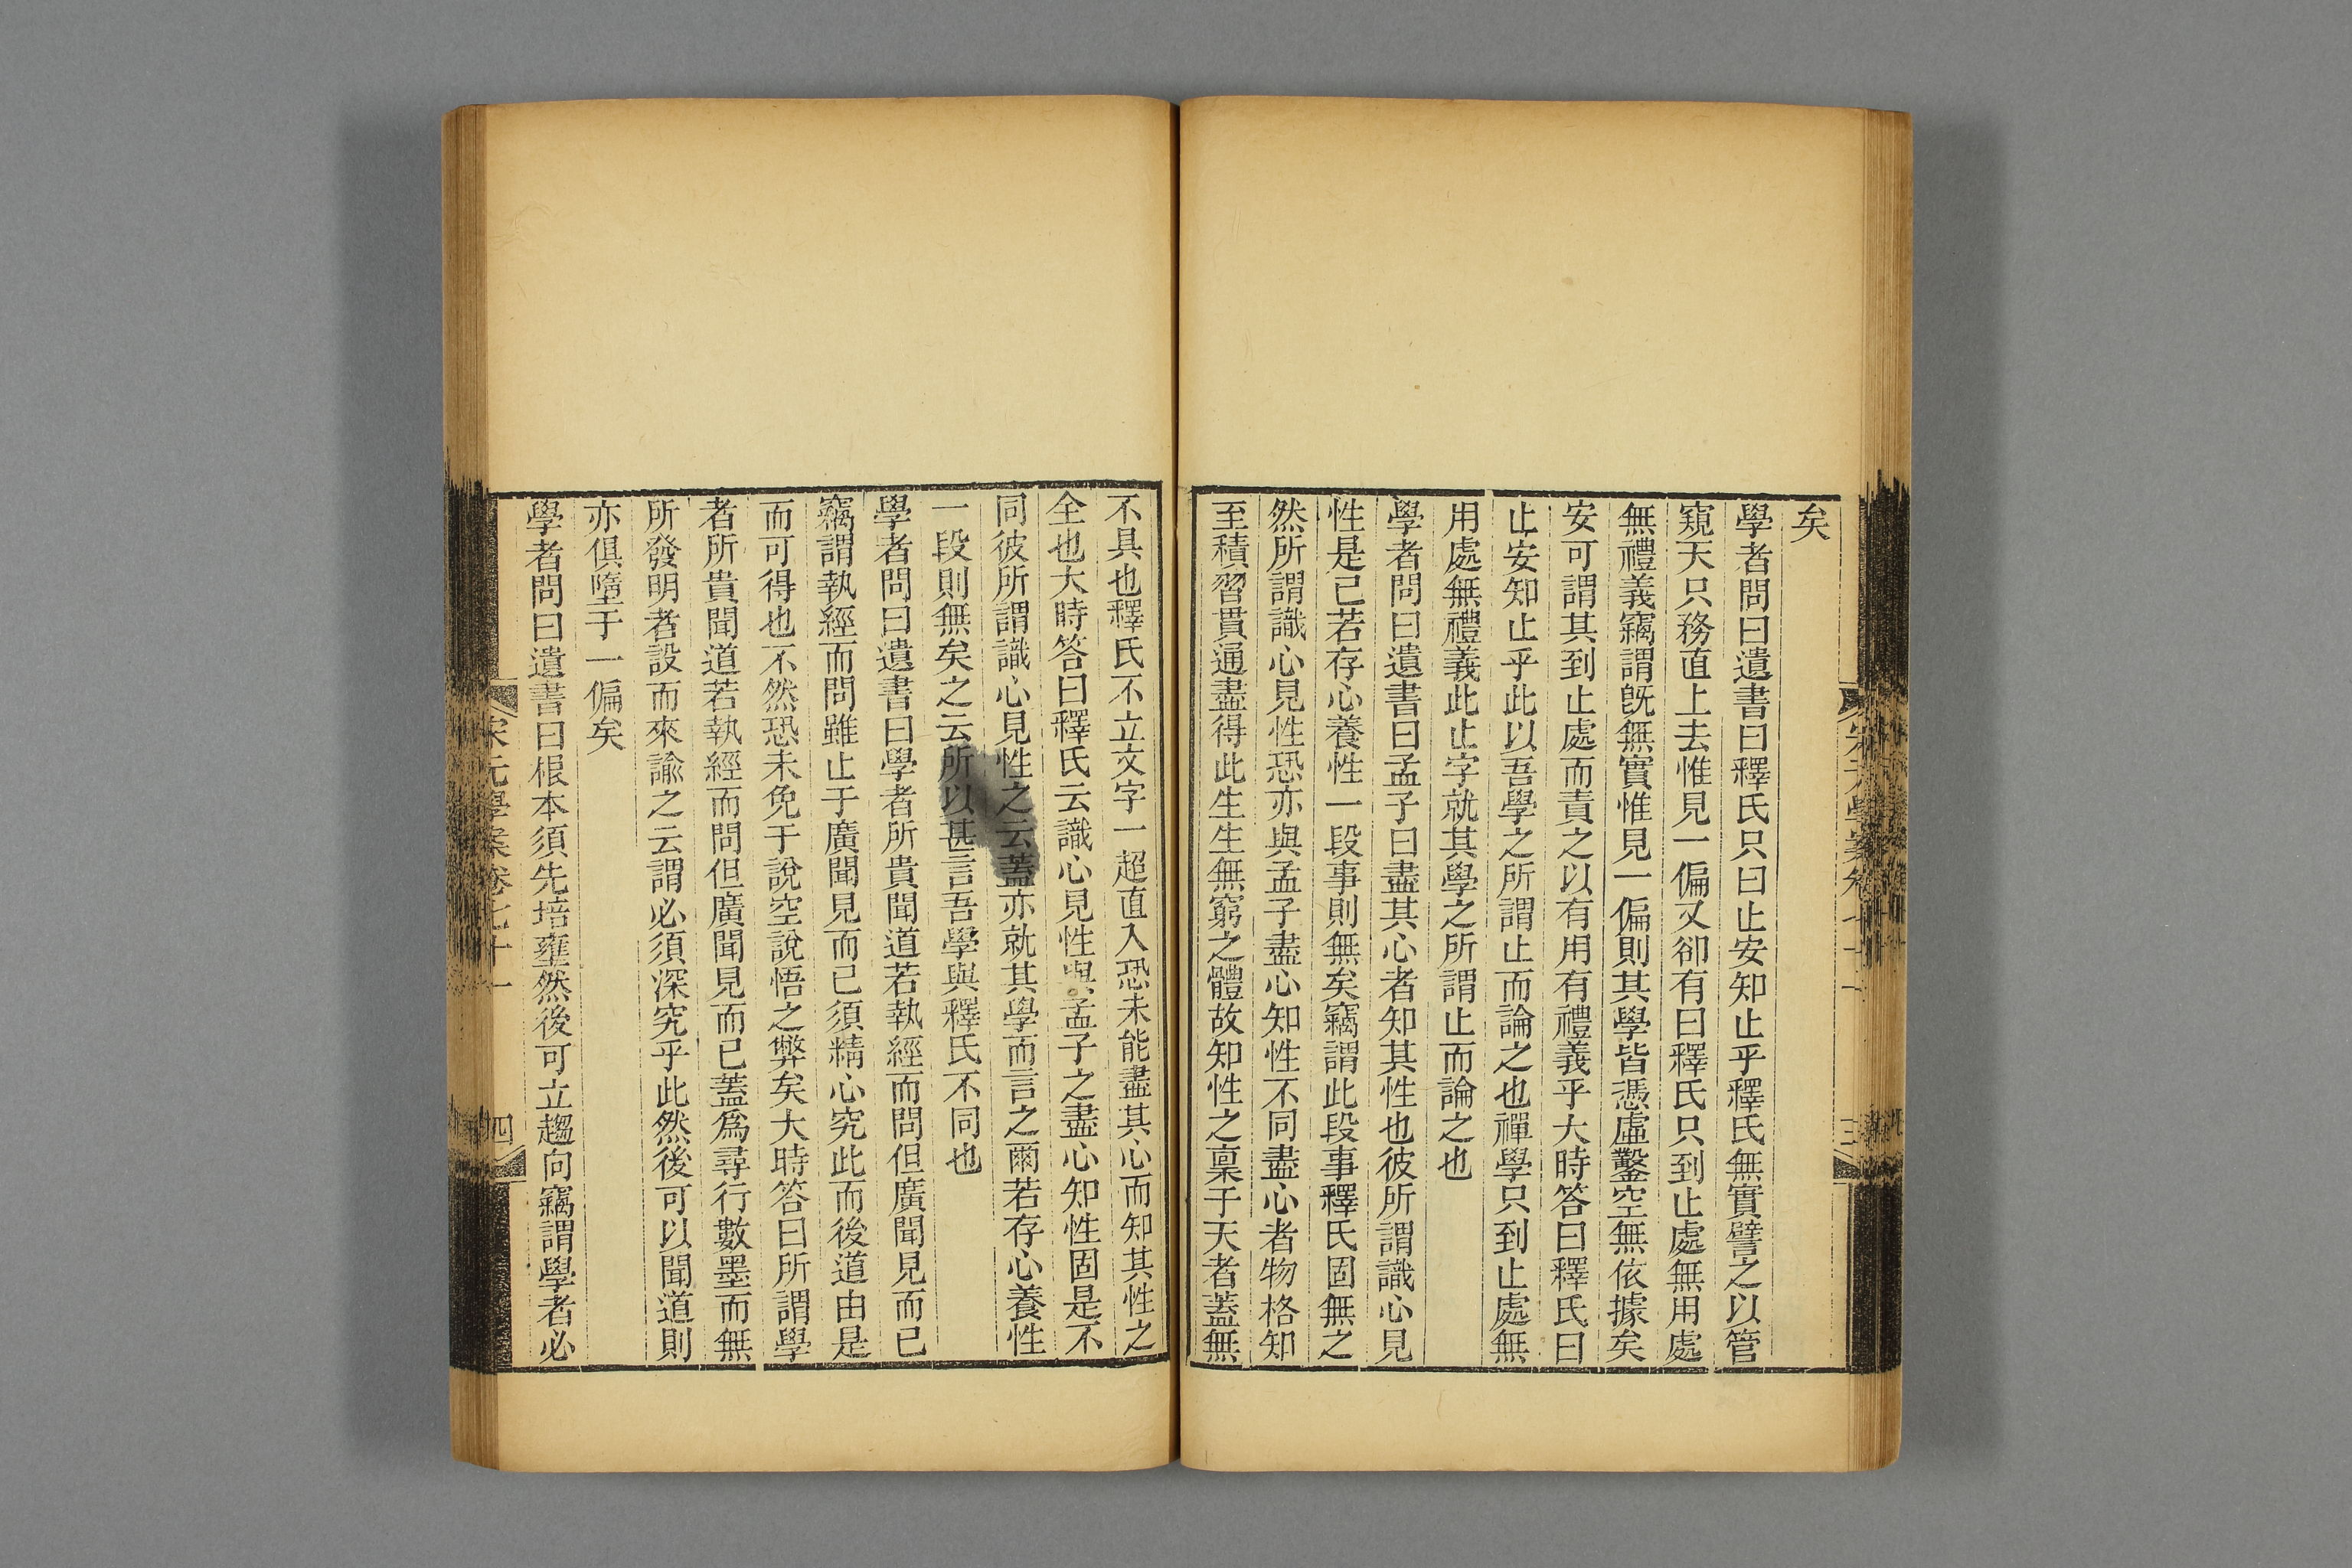 矣
學者問曰遺書曰釋氏只曰止安知止乎釋氏無實譬之以管
窺天只務直上去惟見一偏又卻有曰釋氏只到止處無用處
無禮義竊謂旣無實惟見一偏則其學皆憑虛鑿空無依據矣
安可謂其到止處而責之以有用有禮義乎大時答曰釋氏曰
止安知止乎此以吾學之所謂止而論之也禪學只到止處無
用處無禮義此止字就其學之所謂止而論之也
學者問曰遺書曰孟子曰盡其心者知其性也彼所謂識心見
性是已若存心養性一段事則無矣竊謂此段事釋氏固無之
然所謂識心見性恐亦與孟子盡心知性不同盡心者物格知
至積習貫通盡得此生生無窮之體故知性之稟于天者蓋無
不具也釋氏不立文字一超直入恐未能盡其心而知其性之
全也大時答曰釋氏云識心見性與孟子之盡心知性固是不
同彼所謂識心見性之云蓋亦就其學而言之爾若存心養性
一段則無矣之云所以甚言吾學與釋氏不同也
學者問曰遺書曰學者所貴聞道若執經而問但廣聞見而已
竊謂執經而問雖止于廣聞見而已須精心究此而後道由是
而可得也不然恐未免于說空說悟之弊矣大時答曰所謂學
者所貴聞道若執經而問但廣聞見而已蓋爲尋行數墨而無
所發明者設而來諭之云謂必須深究乎此然後可以聞道則
亦俱墮于一偏矣
學者問曰遺書曰根本須先培壅然後可立趨向竊謂學者必
宋元學案卷七十一
四